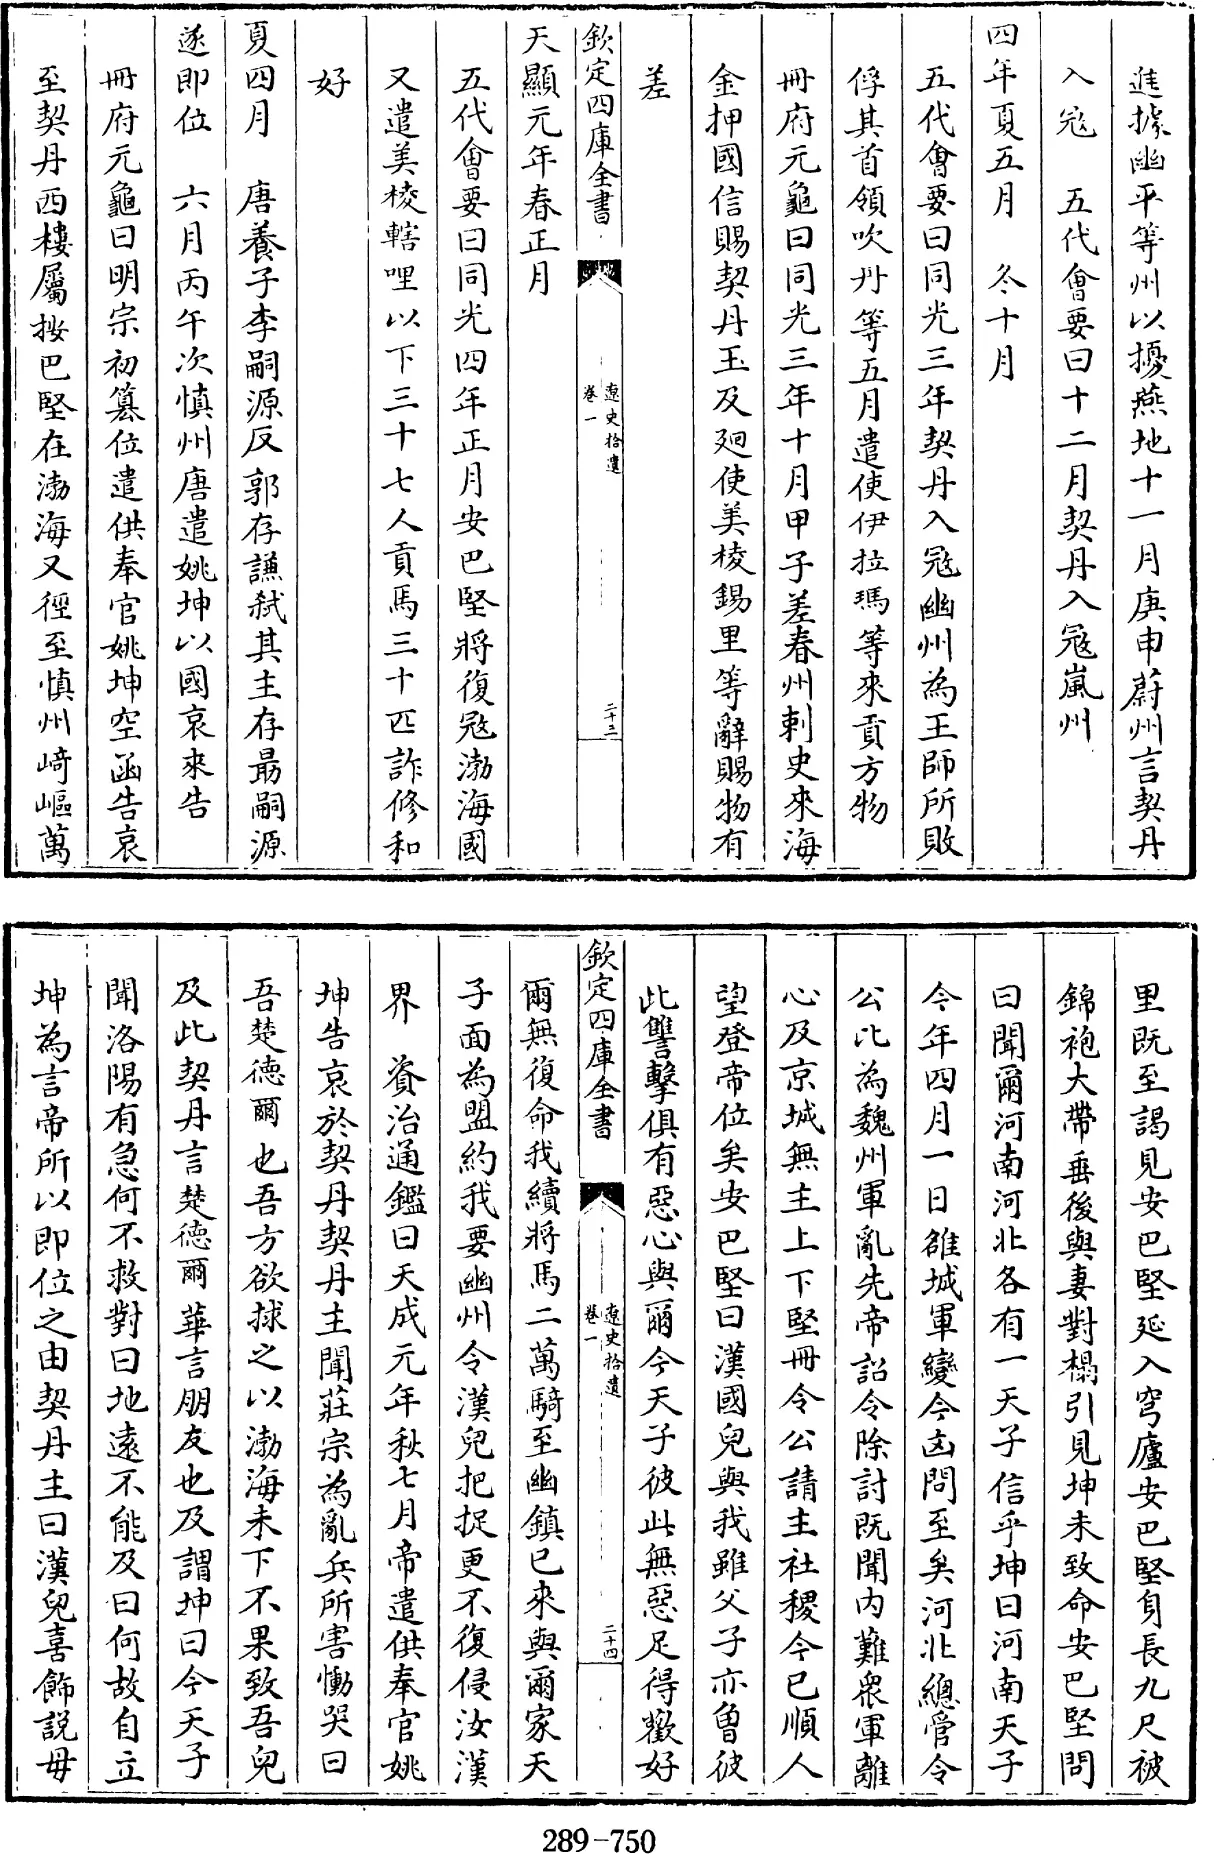 進據幽平等州以擾燕地十一月庚申蔚州言契丹
入寇　五代會要曰十二月契丹入寇嵐州
四年夏五月　冬十月
五代會要曰同光三年契丹入寇幽州為王師所敗
俘其首領吹丹等五月遣使伊拉瑪等來貢方物
冊府元龜曰同光三年十月甲子差春州刺史來海
金押國信賜契丹王及廻使美稜錫里等辭賜物有
差
欽定四庫全書
遼史拾遺
卷一
二十三
天顯元年春正月
五代會要曰同光四年正月安巴堅將復寇渤海國
又遣美稜轄哩以下三十七人貢馬三十匹詐修和
好
夏四月　唐養子李嗣源反郭存謙弒其主存勗嗣源
遂即位　六月丙午次慎州唐遣姚坤以國哀來告
冊府元龜曰明宗初纂位遣供奉官姚坤空函告哀
至契丹西樓屬按巴堅在渤海又徑至慎州﨑嶇萬
里既至謁見安巴堅延入穹廬安巴堅身長九尺被
錦袍大帶垂後與妻對榻引見坤未致命安巴堅問
曰聞爾河南河北各有一天子信乎坤曰河南天子
今年四月一日雒城軍變今凶問至矣河北總管令
公比為魏州軍亂先帝詔令除討既聞內難衆軍離
心及京城無主上下堅冊令公請主社稷今已順人
望登帝位矣安巴堅曰漢國兒與我雖父子亦曾彼
此讐擊俱有惡心與爾今天子彼此無惡足得歡好
欽定四庫全書
遼史拾遺
卷一
二十四
爾無復命我續將馬二萬騎至幽鎮已來與爾家天
子面為盟約我要幽州令漢兒把捉更不復侵汝漢
界　資治通鑑曰天成元年秋七月帝遣供奉官姚
坤告哀於契丹契丹主聞莊宗為亂兵所害慟哭曰
吾楚德爾也吾方欲捄之以渤海未下不果致吾兒
及此契丹言楚德爾華言朋友也及謂坤曰今天子
聞洛陽有急何不救對曰地遠不能及曰何故自立
坤為言帝所以即位之由契丹主曰漢兒喜飾說毋
289-750